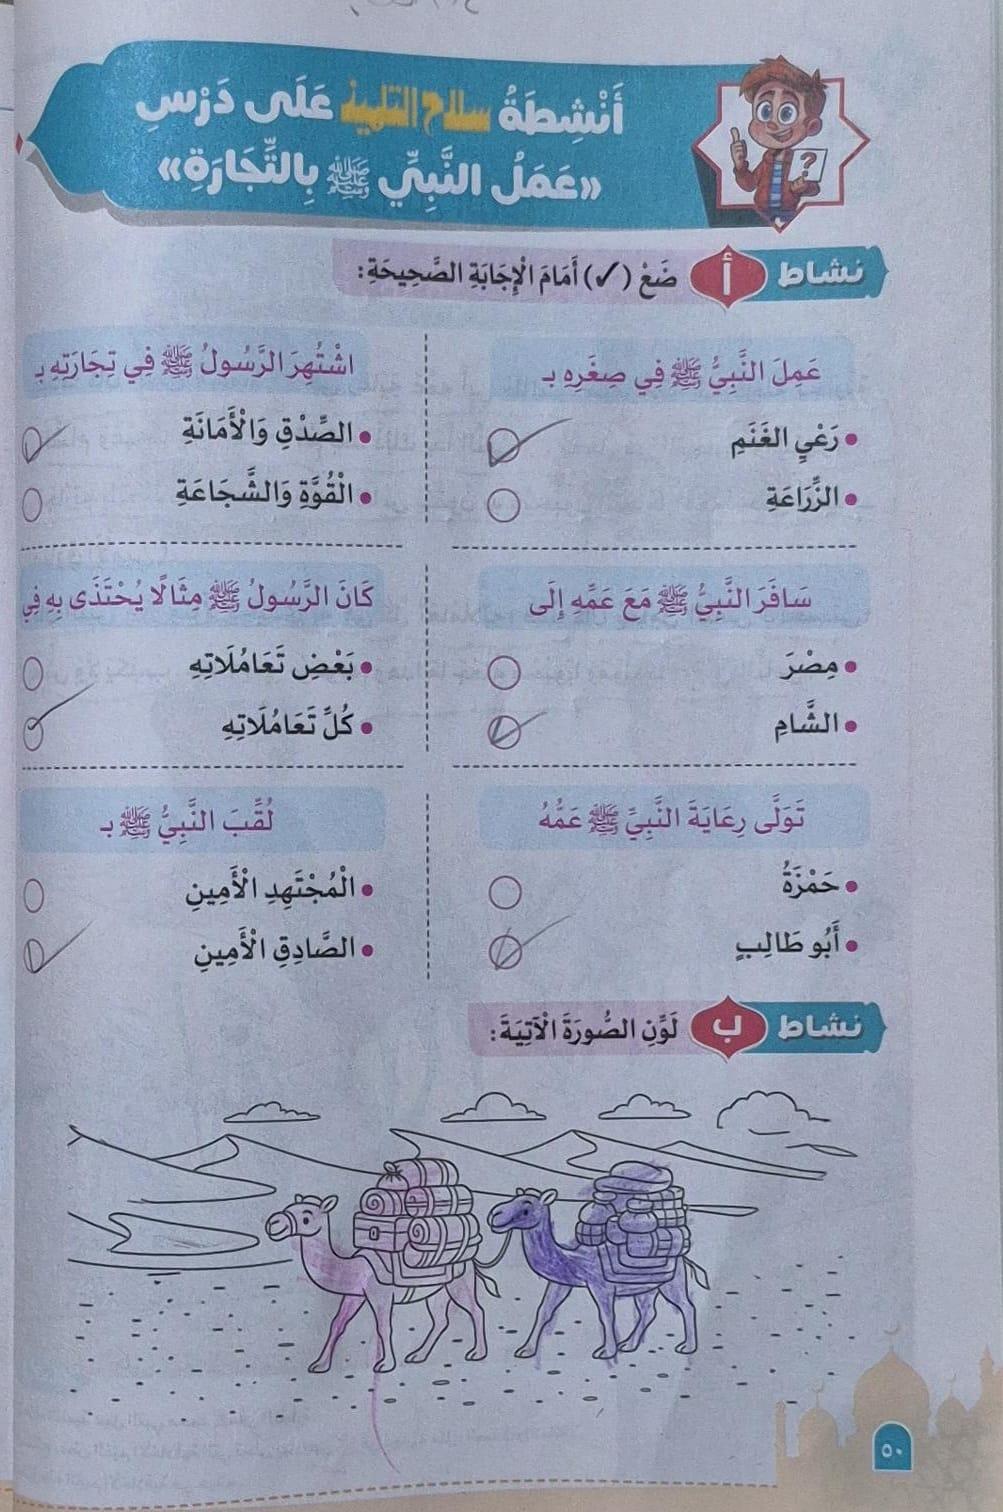 أَنْشِطَةُ سلاح التلميذ عَلَى دَرْسِ
«عَمَلُ النَّبِيِّ ﷺ بِالتِّجَارَةِ»
نشاط أ ضَعْ (✓) أَمَامَ الْإِجَابَةِ الصَّحِيحَةِ:
عَمِلَ النَّبِيُّ ﷺ فِي صِغَرِهِ بـ
• رَعْيِ الغَنَمِ
• الزِّرَاعَةِ
اشْتُهِرَ الرَّسُولُ ﷺ فِي تِجَارَتِهِ بـ
• الصِّدْقِ وَالْأَمَانَةِ
• الْقُوَّةِ وَالشَّجَاعَةِ
سَافَرَ النَّبِيُّ ﷺ مَعَ عَمِّهِ إِلَى
• مِصْرَ
• الشَّامِ
كَانَ الرَّسُولُ ﷺ مِثَالًا يُحْتَذَى بِهِ فِي
• بَعْضِ تَعَامُلَاتِهِ
• كُلِّ تَعَامُلَاتِهِ
تَوَلَّى رِعَايَةَ النَّبِيِّ ﷺ عَمُّهُ
• حَمْزَةُ
• أَبُو طَالِبٍ
لُقِّبَ النَّبِيُّ ﷺ بـ
• الْمُجْتَهِدِ الْأَمِينِ
• الصَّادِقِ الْأَمِينِ
نشاط ب لَوِّنِ الصُّورَةَ الْآتِيَةَ:
٥٠